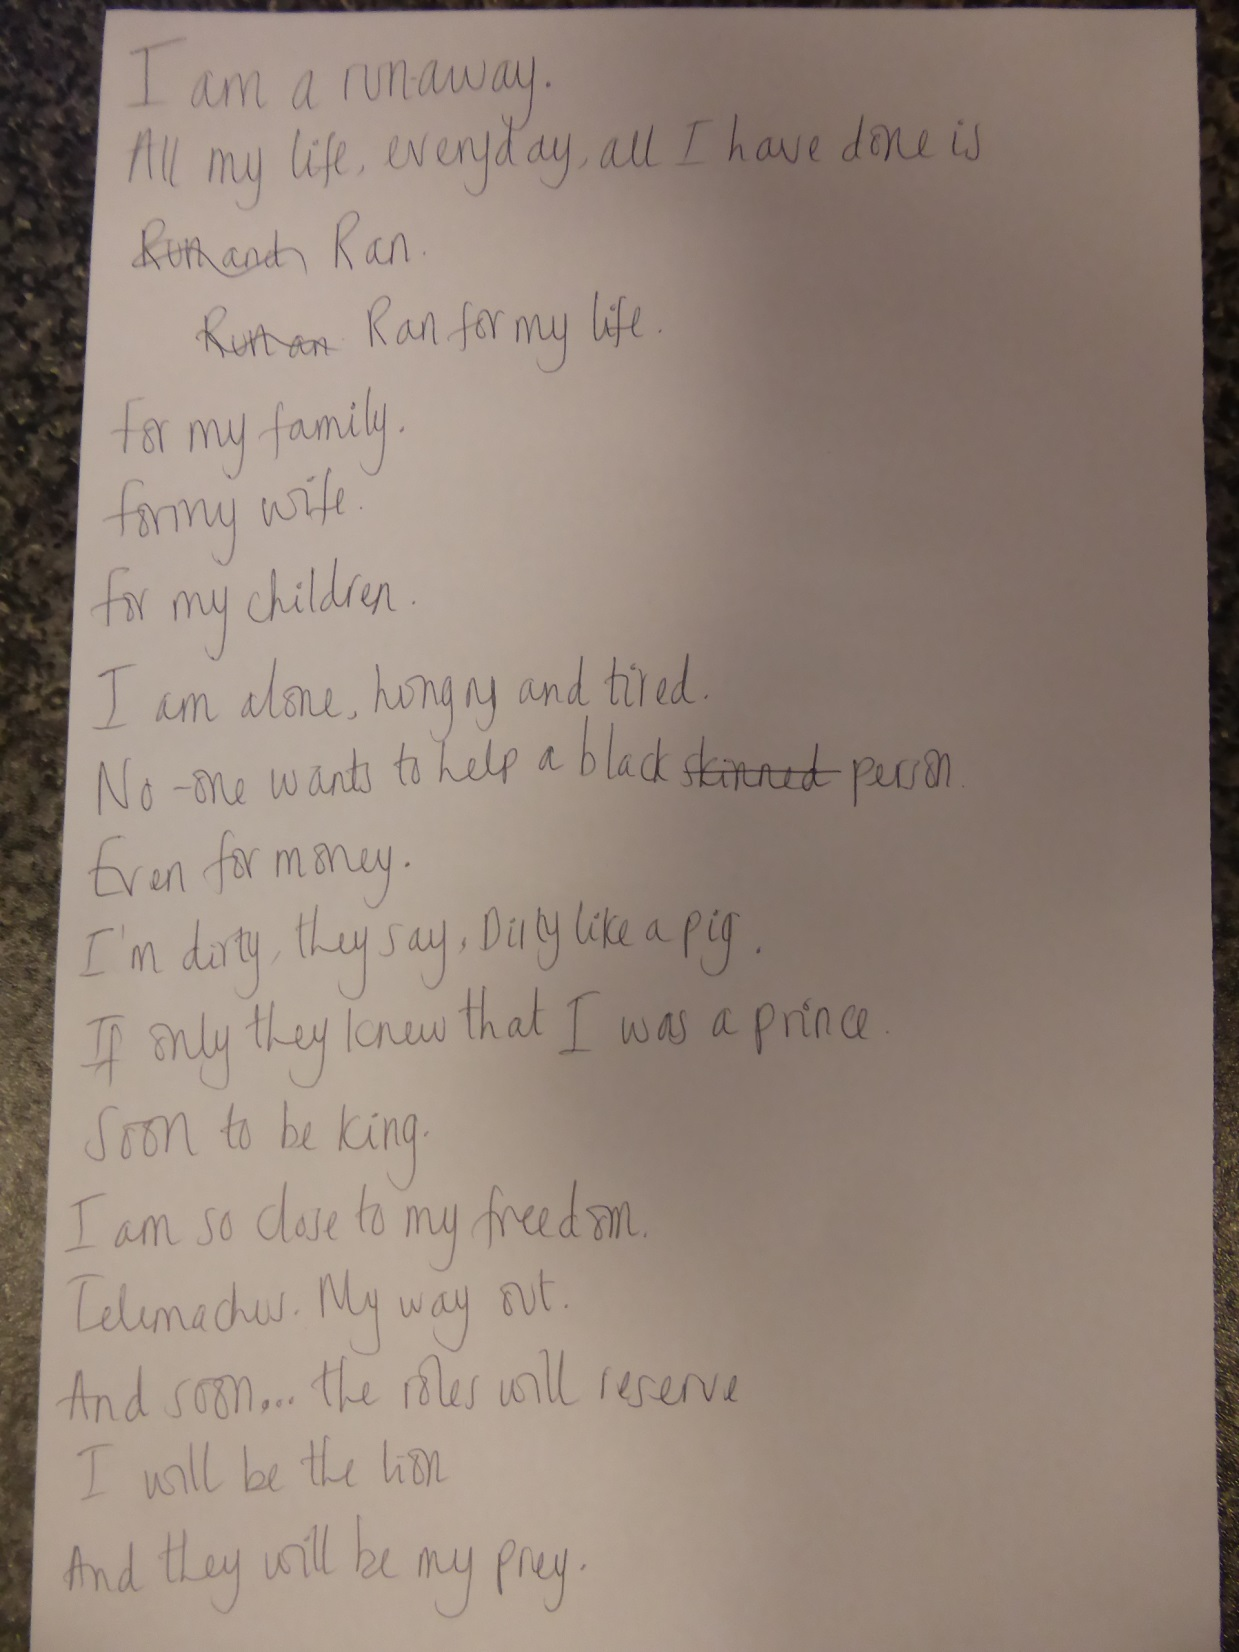 I am a runaway.
All my life, everyday, all I have done is
Run and Ran.
Run an Ran for my life.
for my family.
for my wife.
for my children.
I am alone, hungry and tired.
No-one wants to help a black skinned person.
Even for money.
I'm dirty, they say, Dirty like a pig.
If only they knew that I was a prince.
Soon to be king.
I am so close to my freedom.
Telemachus. My way out.
And soon... the roles will reserve
I will be the lion
And they will be my prey.